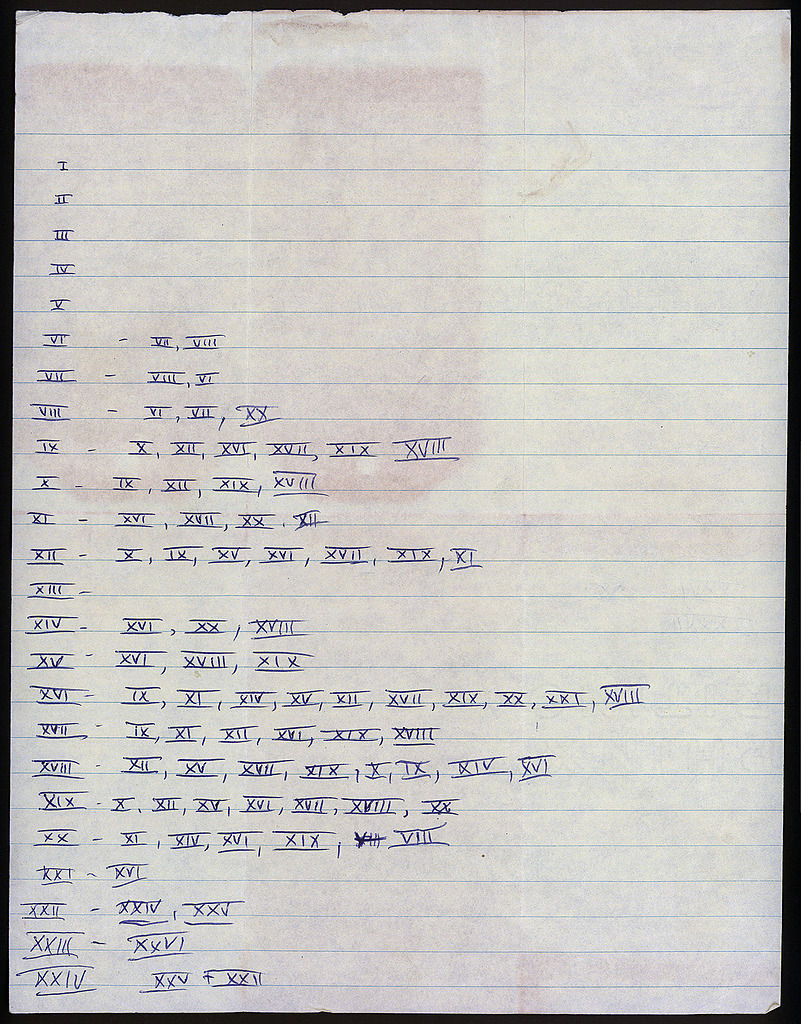 I
II
III
IV
V
VI - VII, VIII
VII - VIII, VI
VIII - VI, VII, XX
IX - X, XII, XVI, XVII, XIX XVIII
X - IX, XII, XIX, XVIII
XI - XVI, XVII, XX, XII
XII - X, IX, XV, XVI, XVII, XIX, XI
XIII -
XIV - XVI, XX, XVIII
XV - XVI, XVIII, XIX
XVI - IX, XI, XIV, XV, XII, XVII, XIX, XX, XXI, XVIII
XVII - IX, XI, XII, XVI, XIX, XVIII
XVIII - XII, XV, XVII, XIX, X, IX, XIV, XVI
XIX - X, XII, XV, XVI, XVII, XVIII, XX
XX - XI, XIV, XVI, XIX, VIII
XXI - XVI
XXII - XXIV, XXV
XXIII - XXVI
XXIV XXV + XXII